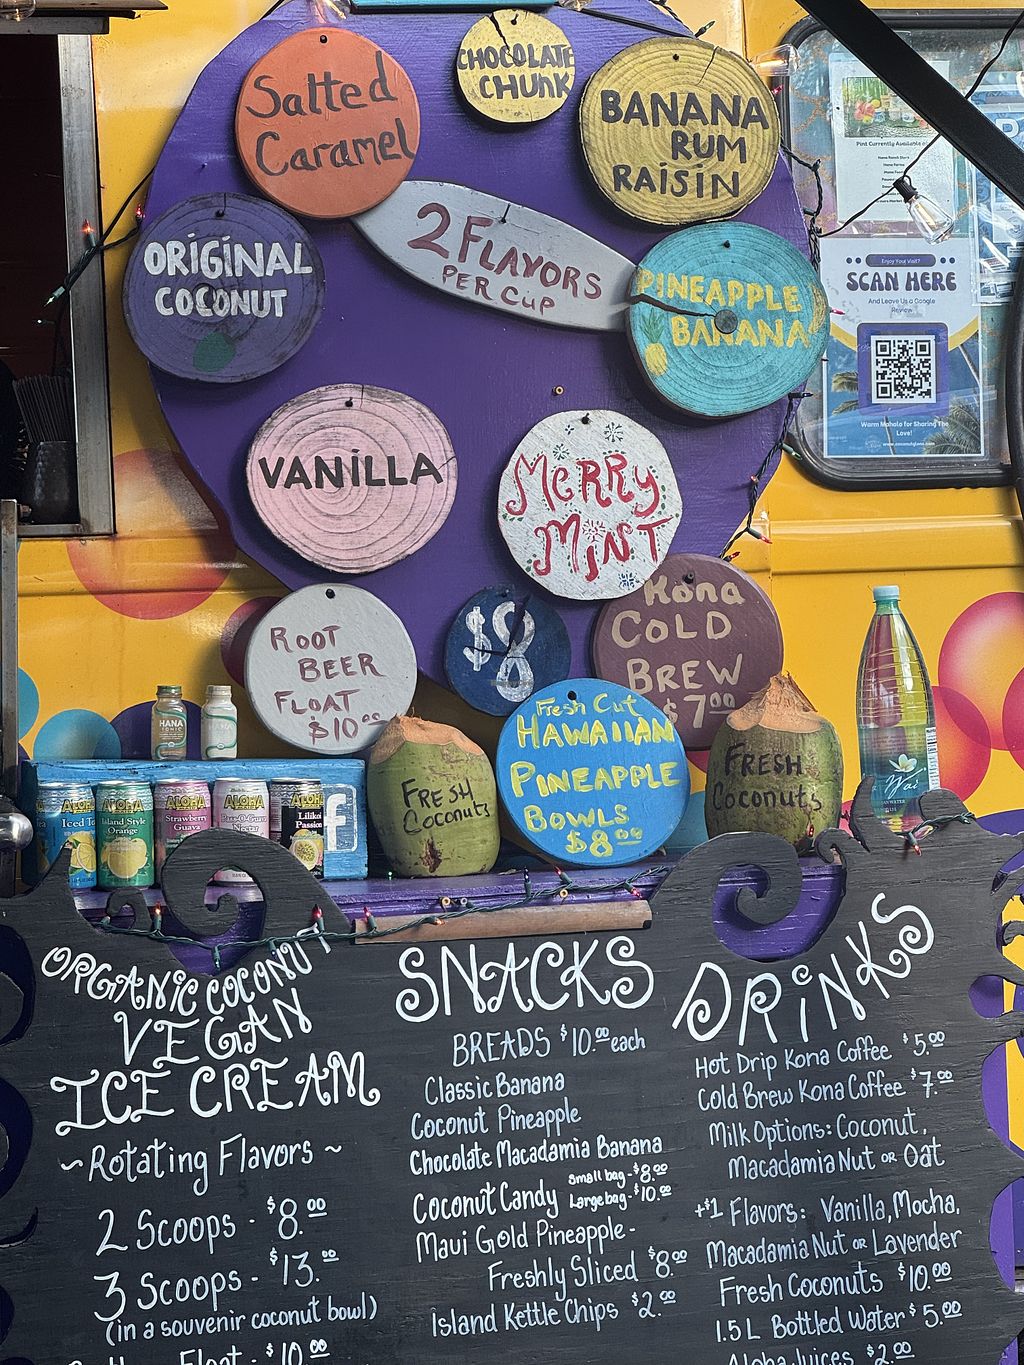 Salted
Caramel
CHOCOLATE
CHUNK
BANANA
RUM
RAISIN
ORIGINAL
COCONUT
2 FLAVORS
PER CUP
PINEAPPLE
BANANA
Pint Currently Available
Enjoy Your Visit?
SCAN HERE
And Leave Us a Google
Review
Warm Mahalo for Sharing The
Love!
VANILLA
MERRY
MINT
ROOT
BEER
FLOAT
$10.00
$8
Kona
COLD
BREW
$7.00
Fresh Cut
HAWAIIAN
PINEAPPLE
BOWLS
$8.00
FRESH
Coconuts
FRESH
Coconuts
HANA
ALOHA
Iced
ALOHA
Island Style
Orange
ALOHA
Strawberry
Guava
ALOHA
Nectar
ALOHA
Lilikoi
Passion
f
Wai
ORGANIC COCONUT
VEGAN
ICE CREAM
~Rotating Flavors~
2 Scoops - $8.00
3 Scoops - $13.00
(in a souvenir coconut bowl)
Float - $10.00
SNACKS
BREADS $10.00 each
Classic Banana
Coconut Pineapple
Chocolate Macadamia Banana
Coconut Candy small bag - $8.00
Large bag - $10.00
Maui Gold Pineapple -
Freshly Sliced $8.00
Island Kettle Chips $2.00
DRINKS
Hot Drip Kona Coffee $5.00
Cold Brew Kona Coffee $7.00
Milk Options: Coconut,
Macadamia Nut or Oat
+$1 Flavors: Vanilla, Mocha,
Macadamia Nut or Lavender
Fresh Coconuts $10.00
1.5 L Bottled Water $5.00
Aloha Juices $2.00